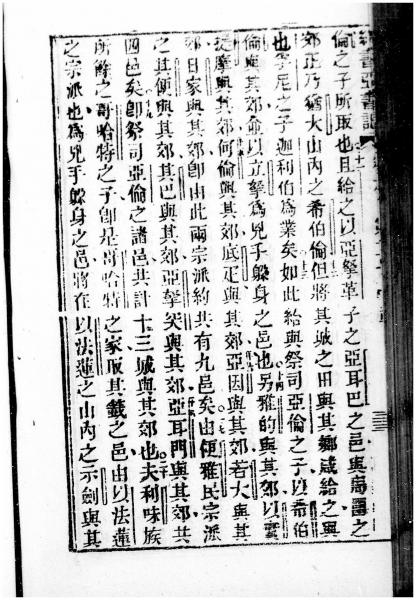 倫之子所取也且給之以亞拏革子之亞耳巴之邑與屬之
郊正乃猶大山內之希伯倫但將其城之田與其鄉咸給之與
也孕尼之子迦利伯為業矣如此給與祭司亞倫之子以希伯
倫與其郊俞以立拏為兇手躲身之邑也另雅的與其郊以
提摩與其郊何倫與其郊底疋與其郊亞因與其郊若大與其
郊日家與其郊卽由此兩宗派約共有九邑矣由便雅民宗派
之其便與其郊其巴與其郊亞拏突與其郊亞耳門與其郊共
四邑矣卽祭司亞倫之諸邑共計十三城與其郊也夫利味族
所餘之哥哈特之子卽是哥哈特之家取其籤之邑由以法蓮
之宗派也為兇手躲身之邑將在以法蓮之山內之示劍與其